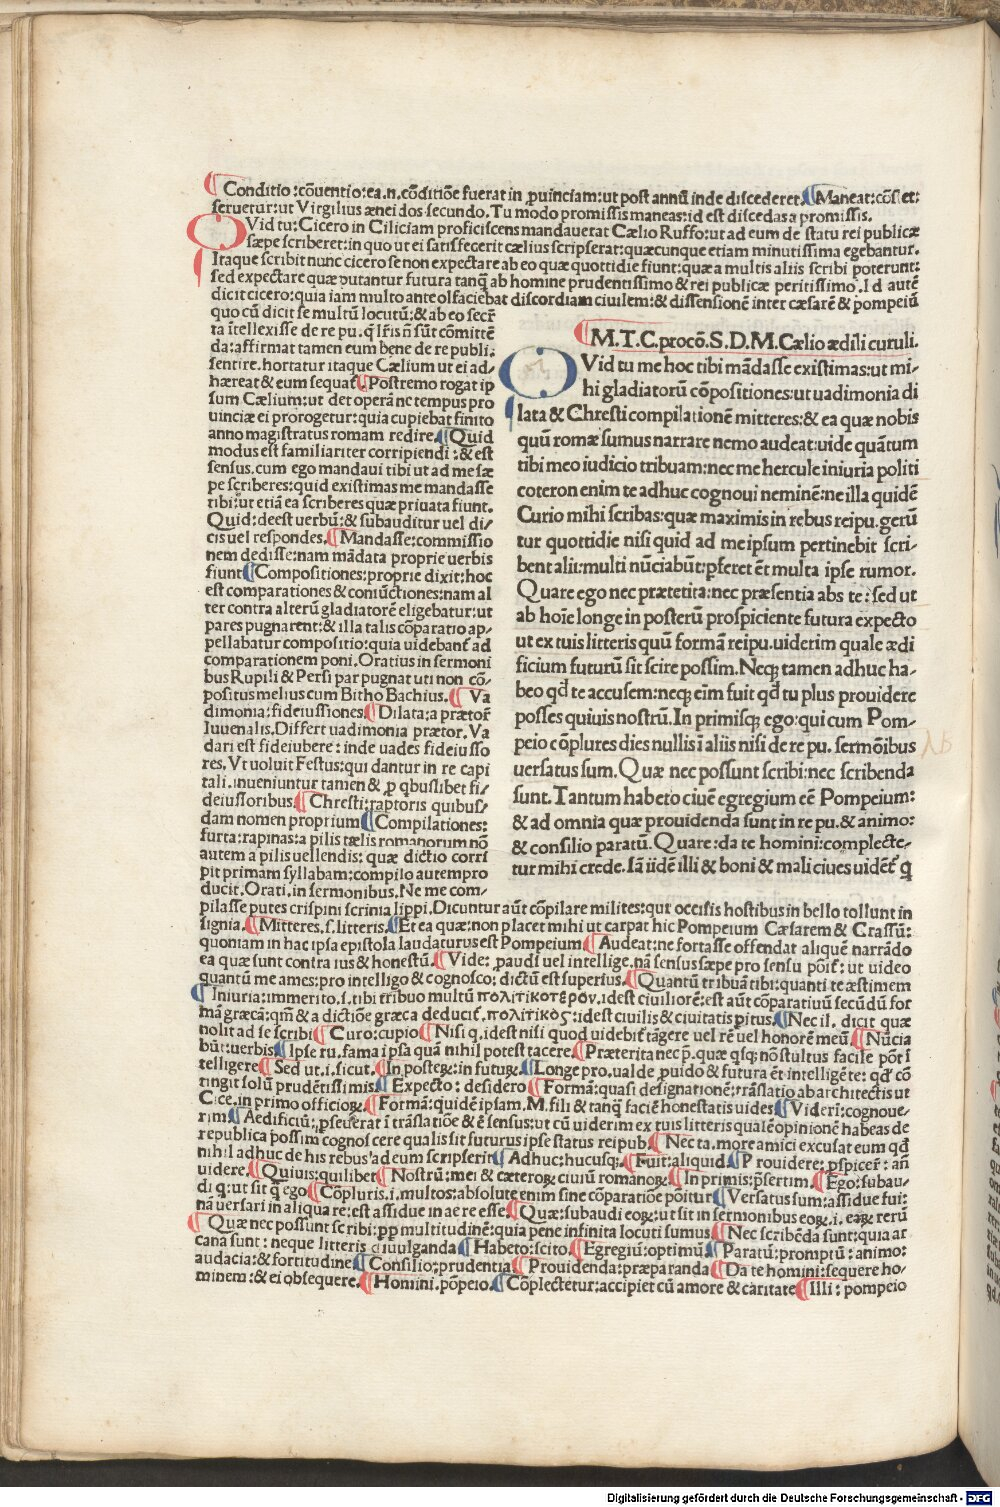 Conditio:cõuentio:ea.n.cõditiõe fuerat in ꝓuinciam:ut post annũ inde discederet. Maneat:cõset:
seruetur:ut Virgilius æneidos secundo. Tu modo promissis maneas:id est discedas a promissis.
QVid tu: Cicero in Ciliciam proficiscens mandauerat Cælio Ruffo:ut ad eum de statu rei publicæ
sæpe scriberet:in quo ut ei satisfecerit cælius scripserat:quæcunque etiam minutissima egebantur.
Itaque scribit nunc cicero se non expectare ab eo quæ quottidie fiunt:quæ a multis aliis scribi poterunt:
sed expectare quæ putantur futura tanꝗ ab homine prudentissimo & rei publicæ peritissimo. Id autẽ
dicit cicero:quia iam multo ante olfaciebat discordiam ciuilem:& dissensionẽ inter cæsarẽ & pompeiũ
quo cũ dicit se multũ locutũ:& ab eo secr̃
ta ĩtellexisse de re pu.q̃ lr̃is nõ sũt cõmittẽ
da:affirmat tamen eum bene de re publi.
sentire.hortatur itaque Cælium ut ei ad-
hæreat & eum sequat̃. Postremo rogat ip
sum Cælium:ut det operã ne tempus pro
uinciæ ei prorogetur:quia cupiebat finito
anno magistratus romam redire. Quid
modus est familiariter corripiendi:& est
sensus.cum ego mandaui tibi ut ad me sæ
pe scriberes:quid existimas me mandasse
tibi:ut etiã ea scriberes quæ priuata fiunt.
Quid:deest uerbũ:& subauditur uel di-
cis uel respondes. Mandasse:commissio
nem dedisse:nam mãdata proprie uerbis
fiunt Compositiones:proprie dixit:hoc
est comparationes & coniũctiones:nam al
ter contra alterũ gladiatorẽ eligebatur:ut
pares pugnarent:& illa talis cõparatio ap-
pellabatur compositio:quia uidebant̃ ad
comparationem poni. Oratius in sermoni
bus Rupili & Persi par pugnat uti non cõ-
positus melius cum Bitho Bachius. Va
dimonia:fideiussiones Dilata:a prætor̃
Iuuenalis. Differt uadimonia prætor. Va
dari est fideiubere:inde uades fideiusso
res. Vt uoluit Festus:qui dantur in re capi
tali.inueniuntur tamen & ꝓ qbussibet fi-
deiussoribus Chresti:raptoris quibus-
dam nomen proprium Compilationes:
furta:rapinas:a pilis tælis romanorum nõ
autem a pilis uellendis: quæ dictio corri
pit primam syllabam:compilo autem pro
ducit. Orati. in sermonibus. Ne me com-
pilasse putes crispini scrinia lippi. Dicuntur aũt cõpilare milites:qui occisis hostibus in bello tollunt in
signia. Mitteres.s.litteris. Et ea quæ:non placet mihi ut carpat hic Pompeium Cæsarem & Crassũ:
quoniam in hac ipsa epistola laudaturus est Pompeium Audeat:ne fortasse offendat aliquẽ narrãdo
ea quæ sunt contra ius & honestũ. Vide: ꝓaudsi uel intellige.nã sensus sæpe pro sensu põit̃: ut uideo
quantũ me ames:pro intelligo & cognosco: dictũ est superius. Quantũ tribuã tibi:quanti te æstimem
Iniuria:immerito.s.tibi tribuo multũ πολιτικοτερον.idest ciuiliorẽ:est aũt cõparatiuũ secũdũ for
mã græcã:qm̃ & a dictiõe græca deducit̃.πολιτικος:idest ciuilis & ciuitatis peritus. Nec il. dicit quæ
nolit ad se scribi Curo:cupio Nisi q.idest nisi quod uidebit̃ tãgere uel rẽ uel honorẽ meũ. Nũcia
bũt:uerbis Ipse ru.fama ipsa quã nihil potest tacere. Præterita nec p̃.quæ qsq;nõ stultus facile põt ĩ
telligere Sed ut.i.sicut. In posteꝝ:in futuꝝ. Longe pro.ualde ꝓuido & futura ẽt intelligẽte: qd̃ cõ
tingit solũ prudẽtissimis Expecto: desidero Formã:quasi designationẽ:trãslatio ab architectis ut
Cice.in primo officioꝝ. Formã:quidẽ ipsam. M. fili & tanꝗ faciẽ honestatis uides Viderĩ:cognoue-
rim Aedificiũ: ꝓseuerat ĩ trãslatiõe & ẽ sensus:ut cũ uiderim ex tuis litteris qualẽ opinionẽ habeas de
republica possim cognoscere qualis sit futurus ipse status reipub. Nec ta.more amici excusat eum qd̃
nihil adhuc de his rebus ad eum scripserit Adhuc:hucusq; Fuit:aliquid. Prouidere: ꝓspicer̃: añ
uidere. Quiuis:quilibet Nostrũ:mei & cæteroꝝ ciuiũ romanoꝝ. In primis:p̃sertim. Ego:subau-
di q:ut sit q̃ ego Cõpluris.i.multos:absolute enim sine cõparatiõe põnitur Versatus sum:assidue fui:
nã uersari in aliqua re:est assidue in ea re esse. Quæ:subaudi eoꝝ:ut sit in sermonibus eoꝝ.i.eaꝝ rerũ
Quæ nec possunt scribi:ꝓp multitudinẽ:quia pene infinita locuti sumus. Nec scribẽda sunt:quia ar
cana sunt: neque litteris diuulganda Habeto:scito. Egregiũ:optimũ. Paratũ:promptũ: animo:
audacia:& fortitudine Consilio:prudentia Prouidenda:præparanda Da te homini:sequere ho-
minem:& ei obsequere. Homini.põpeio. Cõplectetur:accipiet cũ amore & caritate Illi: pompeio
M.T.C.procõ.S.D.M.Cælio ædili curuli.
QVid tu me hoc tibi mãdasse existimas:ut mi-
hi gladiatorũ cõpositiones:ut uadimonia di
lata & Chresti compilationẽ mitteres:& ea quæ nobis
quũ romæ sumus narrare nemo audeat:uide quãtum
tibi meo iudicio tribuam:nec me hercule iniuria politi
coteron enim te adhuc cognoui neminẽ:ne illa quidẽ
Curio mihi scribas:quæ maximis in rebus reipu.gerũ
tur quottidie nisi quid ad me ipsum pertinebit scri-
bent alii:multi nũciabũt:pferet ẽt multa ipse rumor.
Quare ego nec prætetita:nec præsentia abs te: sed ut
ab hoĩe longe in posterũ prospiciente futura expecto
ut ex tuis litteris quũ formã reipu.uiderim quale ædi
ficium futurũ sit scire possim. Neq; tamen adhuc ha-
beo qd̃ te accusem:neq; eĩm fuit qd̃ tu plus prouidere
posses quiuis nostrũ. In primisq; ego:qui cum Pom-
peio cõplures dies nullis ĩ aliis nisi de re pu. sermõibus
uersatus sum. Quæ nec possunt scribi:nec scribenda
sunt. Tantum habeto ciuẽ egregium eẽ Pompeium:
& ad omnia quæ prouidenda sunt in re pu.& animo:
& consilio paratũ. Quare:da te homini:complecte-
tur mihi crede. Iã iidẽ illi & boni & mali ciues uidẽt̃ q
Digitalisierung gefördert durch die Deutsche Forschungsgemeinschaft - DFG